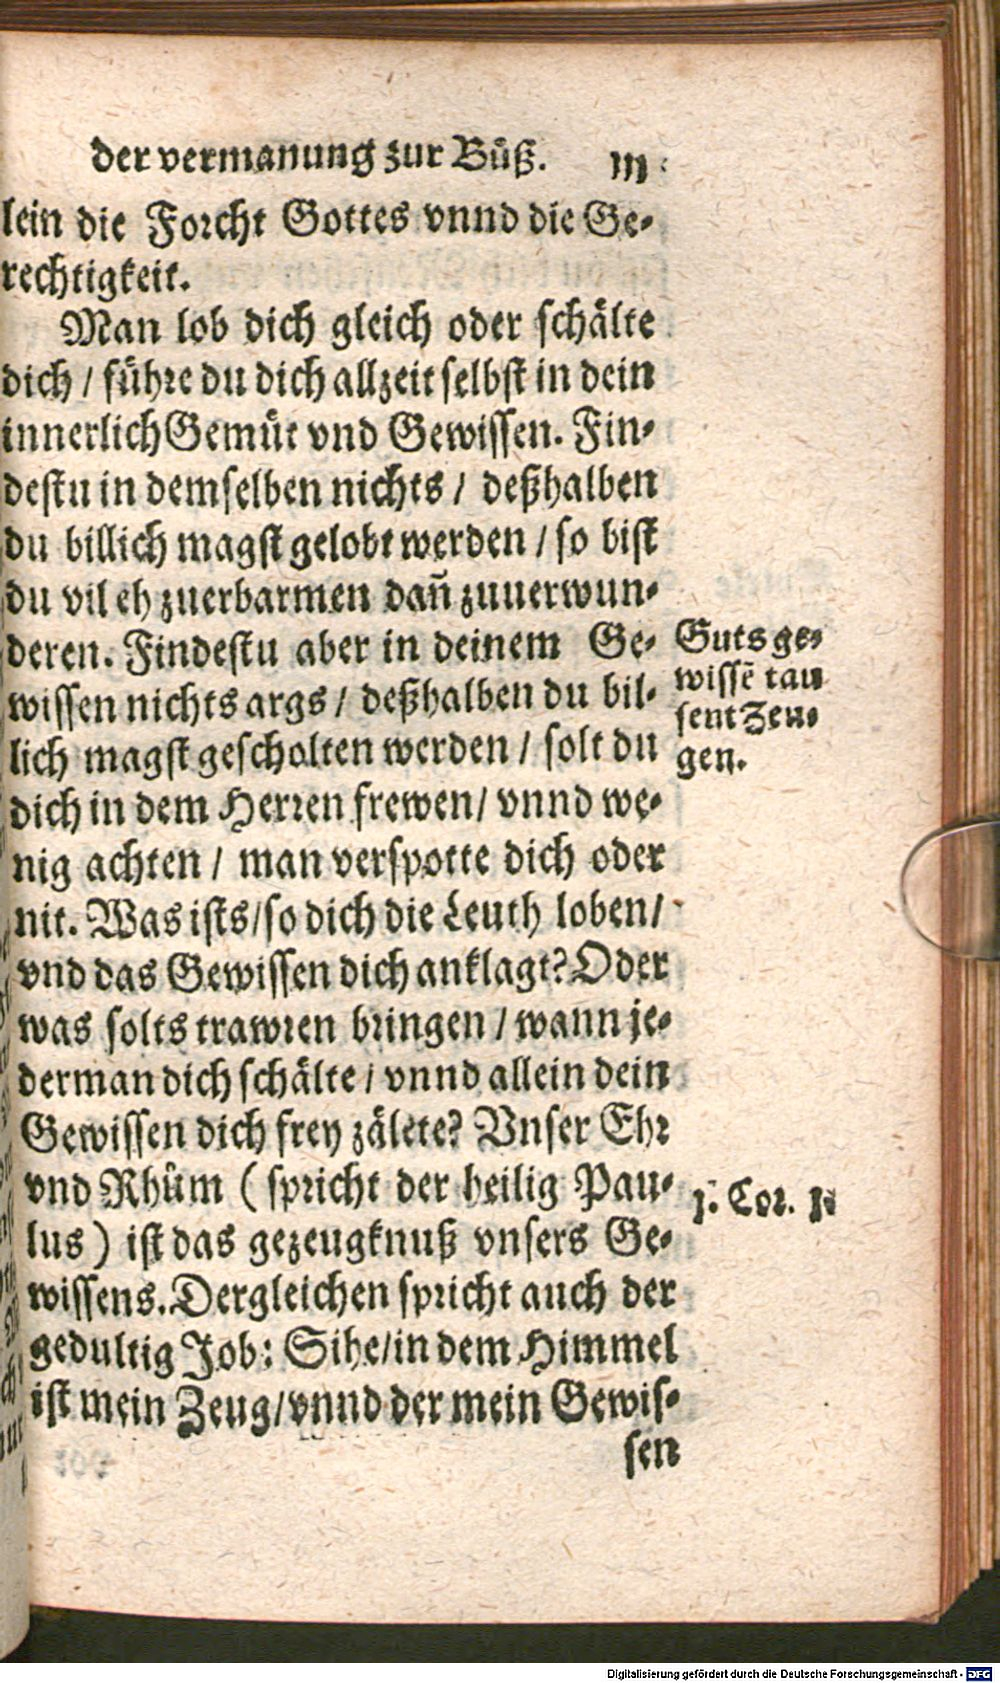 der vermanung zur Bůß. 111
lein die Forcht Gottes vnnd die Ge-
rechtigkeit.
Man lob dich gleich oder schälte
dich / führe du dich allzeit selbst in dein
innerlich Gemüt vnd Gewissen. Fin-
destu in demselben nichts / deßhalben
du billich magst gelobt werden / so bist
du vil eh zuerbarmen dañ zuuerwun-
deren. Findestu aber in deinem Ge-
wissen nichts args / deßhalben du bil-
lich magst gescholten werden / solt du
dich in dem Herren frewen / vnnd we-
nig achten / man verspotte dich oder
nit. Was ists / so dich die Leuth loben /
vnd das Gewissen dich anklagt? Oder
was solts trawren bringen / wann je-
derman dich schälte / vnnd allein dein
Gewissen dich frey zälete? Vnser Ehr
vnd Rhům ( spricht der heilig Pau-
lus ) ist das gezeugknuß vnsers Ge-
wissens. Dergleichen spricht auch der
gedultig Job: Sihe / in dem Himmel
ist mein Zeug / vnnd der mein Gewis-
sen
Guts ge-
wissē tau
sent Zeu-
gen.
1. Cor. 1.
Digitalisierung gefördert durch die Deutsche Forschungsgemeinschaft - DFG